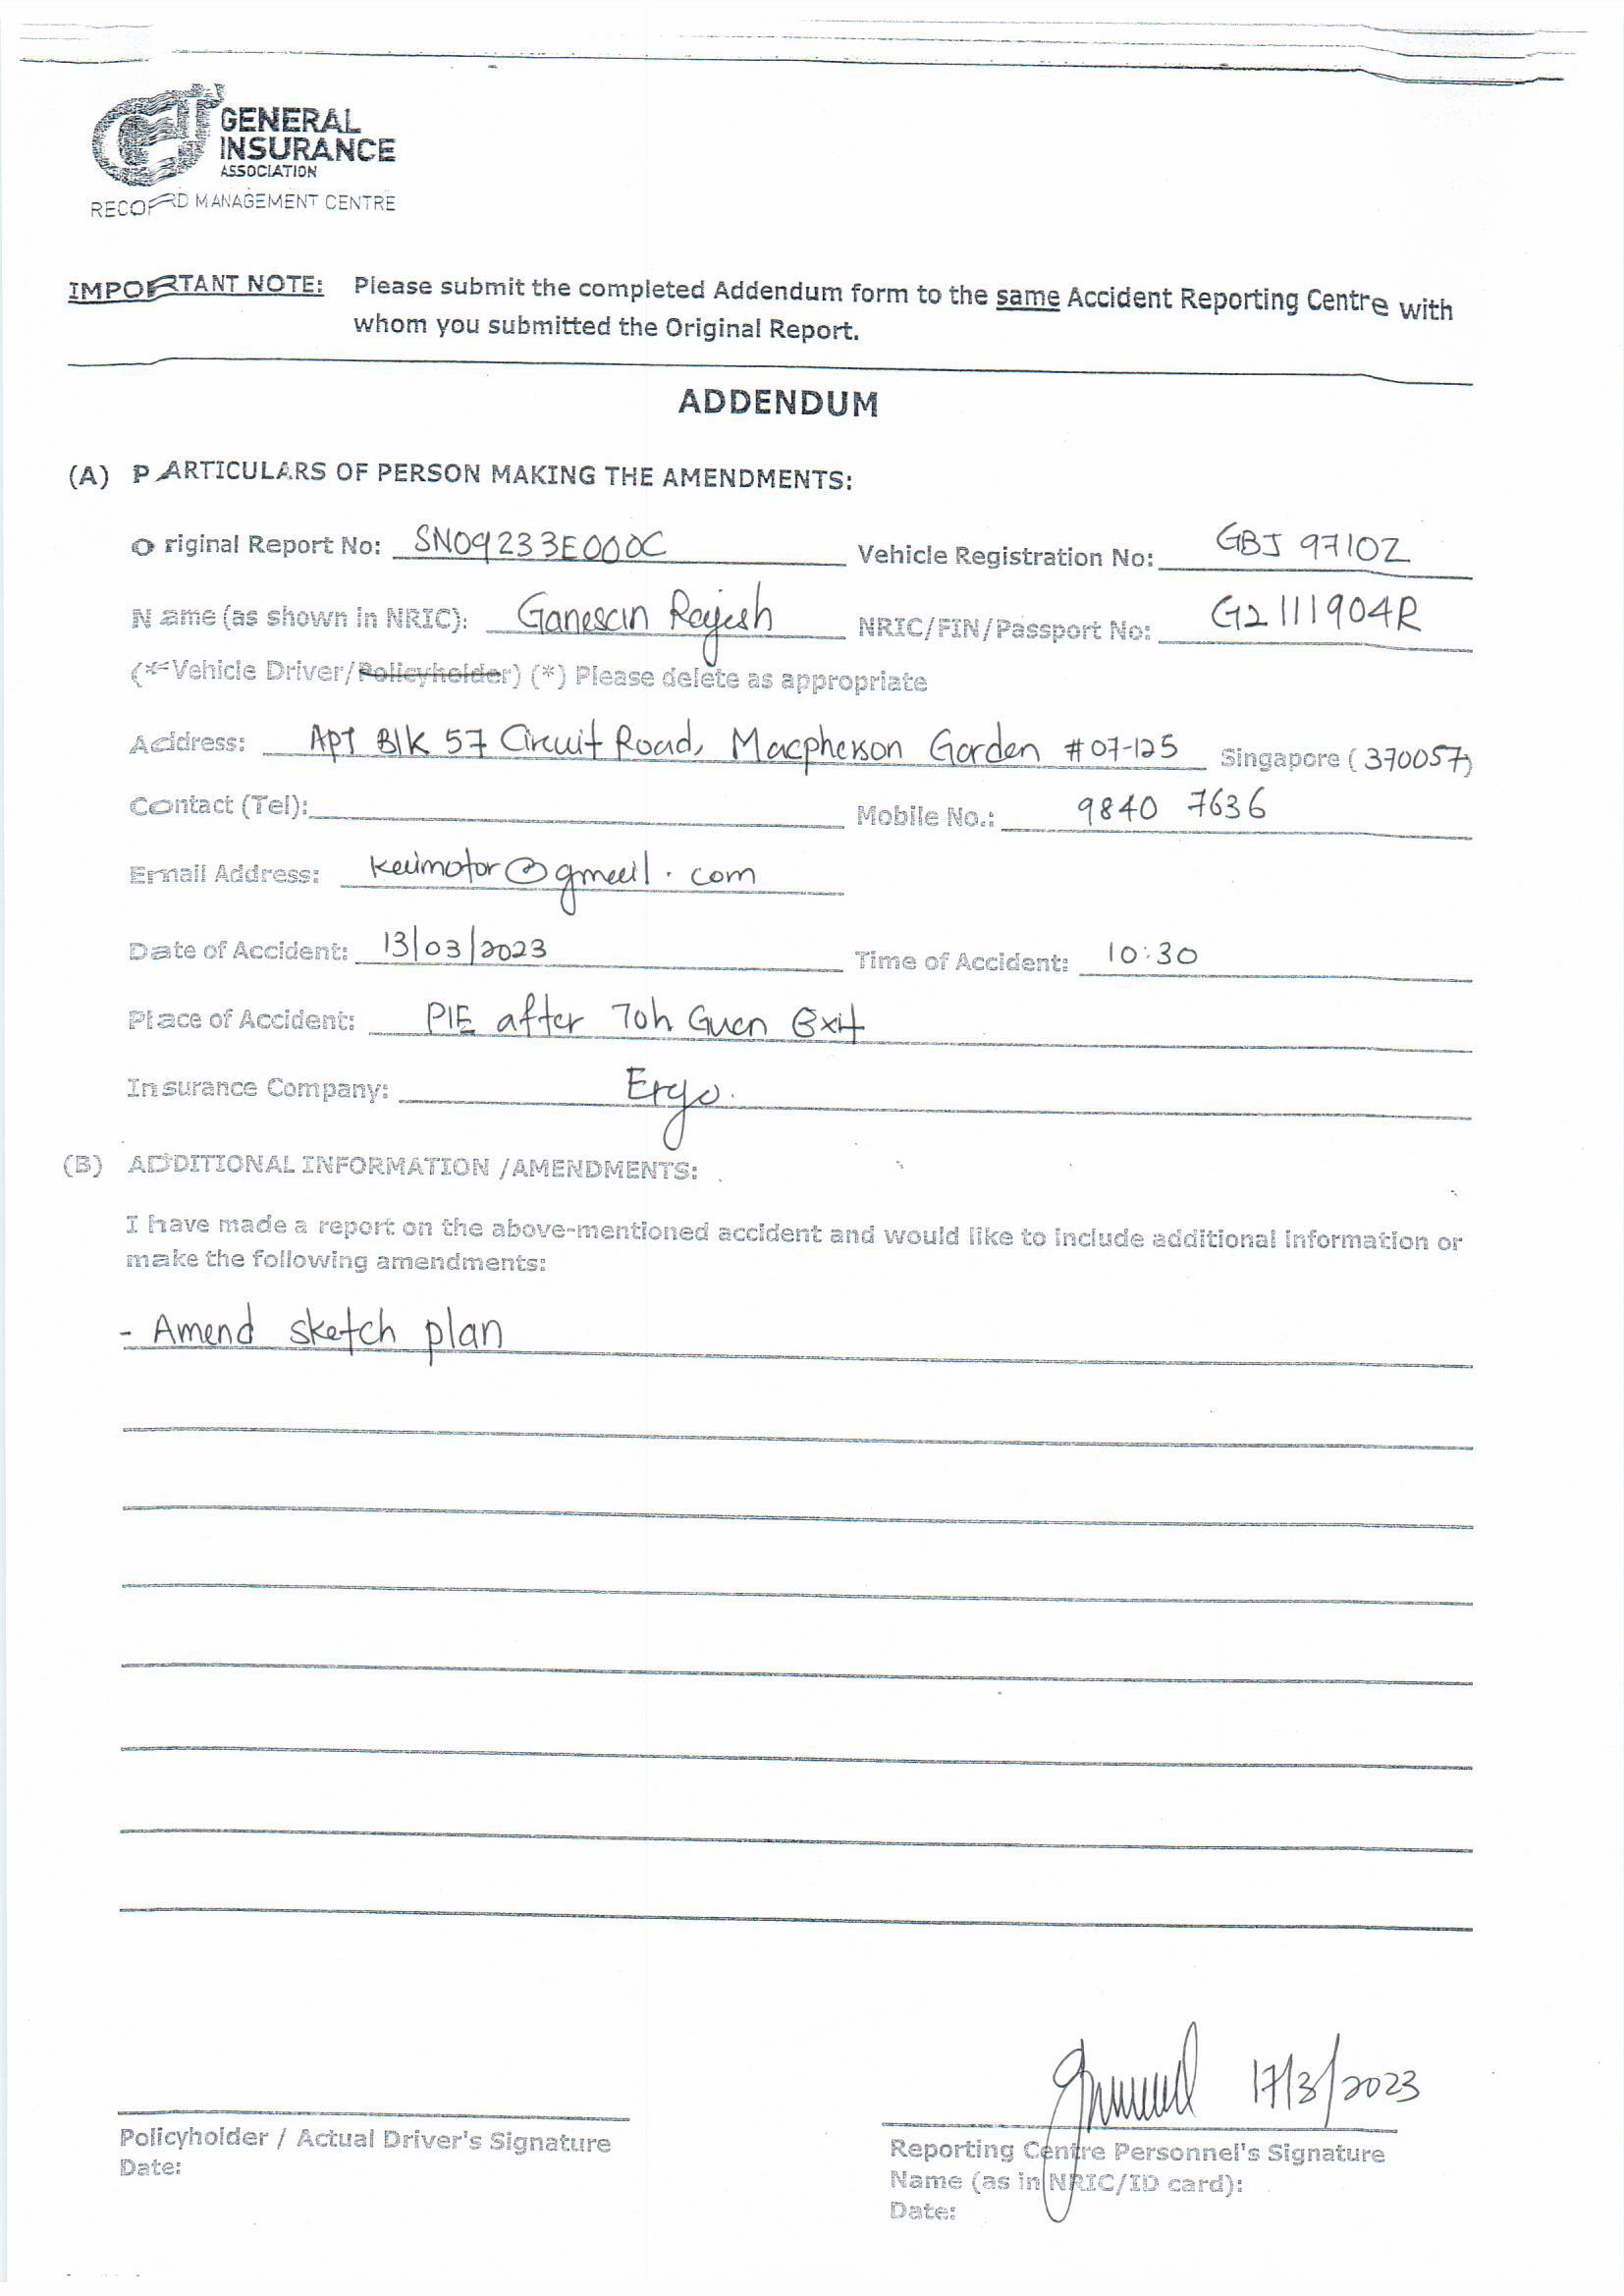 GENERAL
INSURANCE
ASSOCIATION
RECORD MANAGEMENT CENTRE
IMPORTANT NOTE: Please submit the completed Addendum form to the same Accident Reporting Centre with
whom you submitted the Original Report.
ADDENDUM
(A) PARTICULARS OF PERSON MAKING THE AMENDMENTS:
Original Report No: SN09233E000C Vehicle Registration No: GBJ 9710Z
Name (as shown in NRIC): Ganesan Rajesh NRIC/FIN/Passport No: G2111904R
(*Vehicle Driver/Policyholder) (*) Please delete as appropriate
Address: Apt Blk 57 Circuit Road, Macpherson Garden #07-125 Singapore (370057)
Contact (Tel): Mobile No.: 9840 7636
Email Address: @gmail.com
Date of Accident: 13/03/2023 Time of Accident: 10:30
Place of Accident: PIE after Toh Guan Exit
Insurance Company: Ergo.
(B) ADDITIONAL INFORMATION /AMENDMENTS:
I have made a report on the above-mentioned accident and would like to include additional information or
make the following amendments:
- Amend sketch plan
17/3/2023
Policyholder / Actual Driver's Signature Reporting Centre Personnel's Signature
Date: Name (as in NRIC/ID card):
Date: